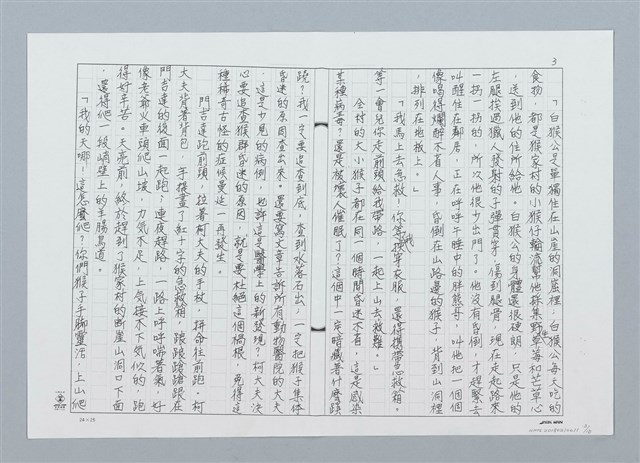 3
「白猴公是單獨住在山崖的洞窟裡，白猴公每天吃的
食物，都是猴家村的小猴仔輪流幫他採集野草莓和芒草心
，送到他的住所給他。白猴公的身體還很硬朗，只是他的
左腿挨過獵人發射的子彈貫穿，傷到腿骨，現在走起路來
一拐一拐的，所次他很少出門了。他沒有昏倒，才趕緊去
叫醒住在鄰居，正在呼呼午睡中的胖熊哥，叫他把一個個
像喝得爛醉不省人事，昏倒在山路邊的猴子，背到山洞裡
，排列在地板上。」
「我馬上去急救！你等我穿衣服，還得攜帶急救箱。
等一會兒你走前頭給我帶路，一起上山去救難。」
全村的大小猴子都在同一個時間昏迷不省，這是感染
某種病毒？還是被壞人催眠了？這個中一定暗藏著什麼蹊
蹺？我一定要追查到底，查到水落石出，一定把猴子集体
昏迷的原因查出來。還要寫文章告訴所有動物醫院的大夫
，這是少見的病例，也許這是醫學上的新發現？柯大夫決
心要追查猴群昏迷的原因，就是要杜絕這個禍根，免得這
種稀奇古怪的症候蔓延一再發生。
門吉達跑前頭，拉著柯大夫的手杖，拼命往前跑。柯
大夫背著背包，手提畫了紅十字的急救箱，踉踉蹌蹌跟在
門吉達的後面一起跑？連夜趕路，一路上呼呼喘著氣，好
像老爺火車頭爬山坡，力氣不足，上氣接不下氣似的，跑
得好辛苦。天亮前，終於趕到了猴家村的斷崖山洞口下面
，還得爬一段峭壁上的羊腸鳥道。
「我的天哪！這怎麼爬？你們猴子手腳靈活，上山爬
24×25